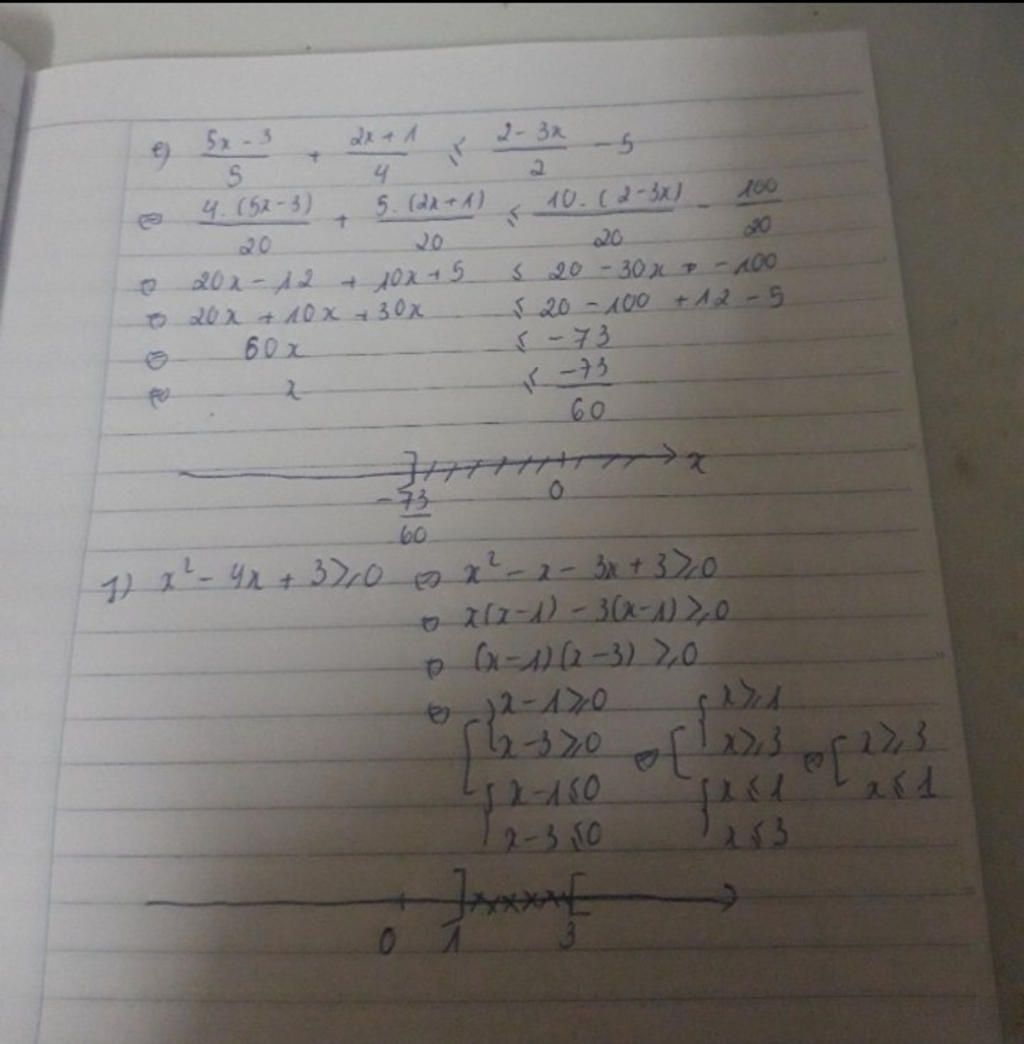 e) (5x - 3)/5 + (2x + 1)/4 ≤ (2 - 3x)/2 - 5
⇔ (4.(5x-3))/20 + (5.(2x+1))/20 ≤ (10.(2-3x))/20 - 100/20
⇔ 20x - 12 + 10x + 5 ≤ 20 - 30x + -100
⇔ 20x + 10x + 30x ≤ 20 - 100 + 12 - 5
⇔ 60x ≤ -73
⇔ x ≤ -73/60
] x
-73/60 0
f) x² - 4x + 3 ≥ 0 ⇔ x² - x - 3x + 3 ≥ 0
⇔ x(x-1) - 3(x-1) ≥ 0
⇔ (x-1)(x-3) ≥ 0
⇔ [ { x - 1 ≥ 0 ⇔ [ { x ≥ 1
x - 3 ≥ 0 x ≥ 3 ⇔ [ x ≥ 3
{ x - 1 ≤ 0 { x ≤ 1 x ≤ 1
x - 3 ≤ 0 x ≤ 3
] [
0 1 3